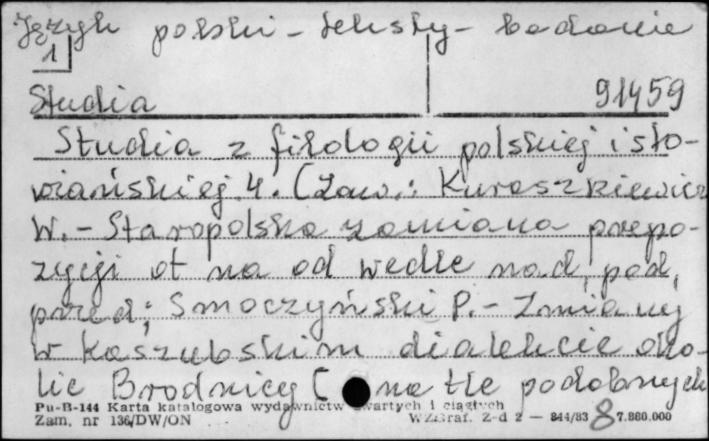 Język polski - teksty - badanie
1
Studia 91459
Studia z filologii polskiej i sło-
wiańskiej 4. [Zaw.: Kuraszkiewicz
W. - Staropolska zamiana prepo-
zycji ot na od wedle nad, pod,
przed; Smoczyński P. - Zmiany
w kaszubskim dialekcie oko-
lic Brodnicy [ na tle podobnych
Pu-B-144 Karta katalogowa wydawnictw zwartych i ciągłych
Zam. nr 136/DW/ON WZGraf. Z-d 2 — 844/83 8 7.860.000